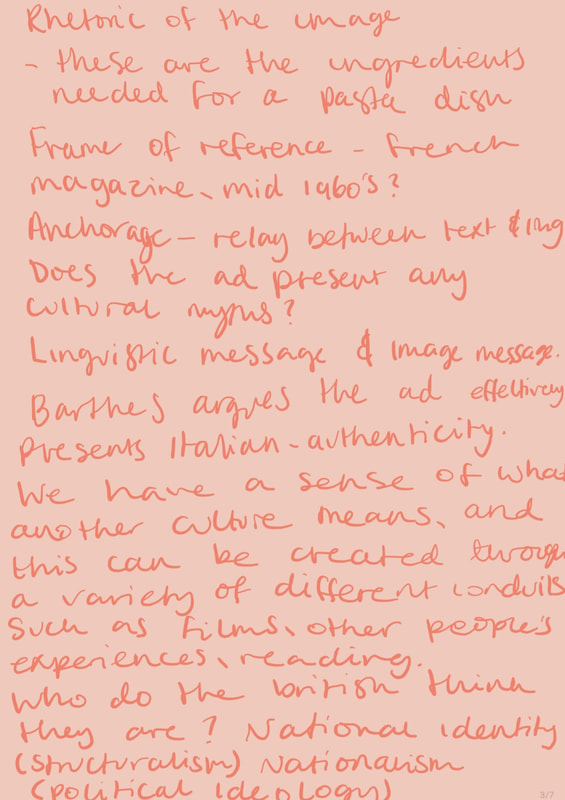 Rhetoric of the image
- these are the ingredients
needed for a pasta dish
Frame of reference - French
magazine, mid 1960's?
Anchorage - relay between text & img
Does the ad present any
cultural myths?
Linguistic message & image message.
Barthes argues the ad effectively
presents Italian-authenticity.
We have a sense of what
another culture means, and
this can be created through
a variety of different conduits
such as films, other people's
experiences, reading.
Who do the british think
they are? National identity
(structuralism) Nationalism
(political ideology)
3/7